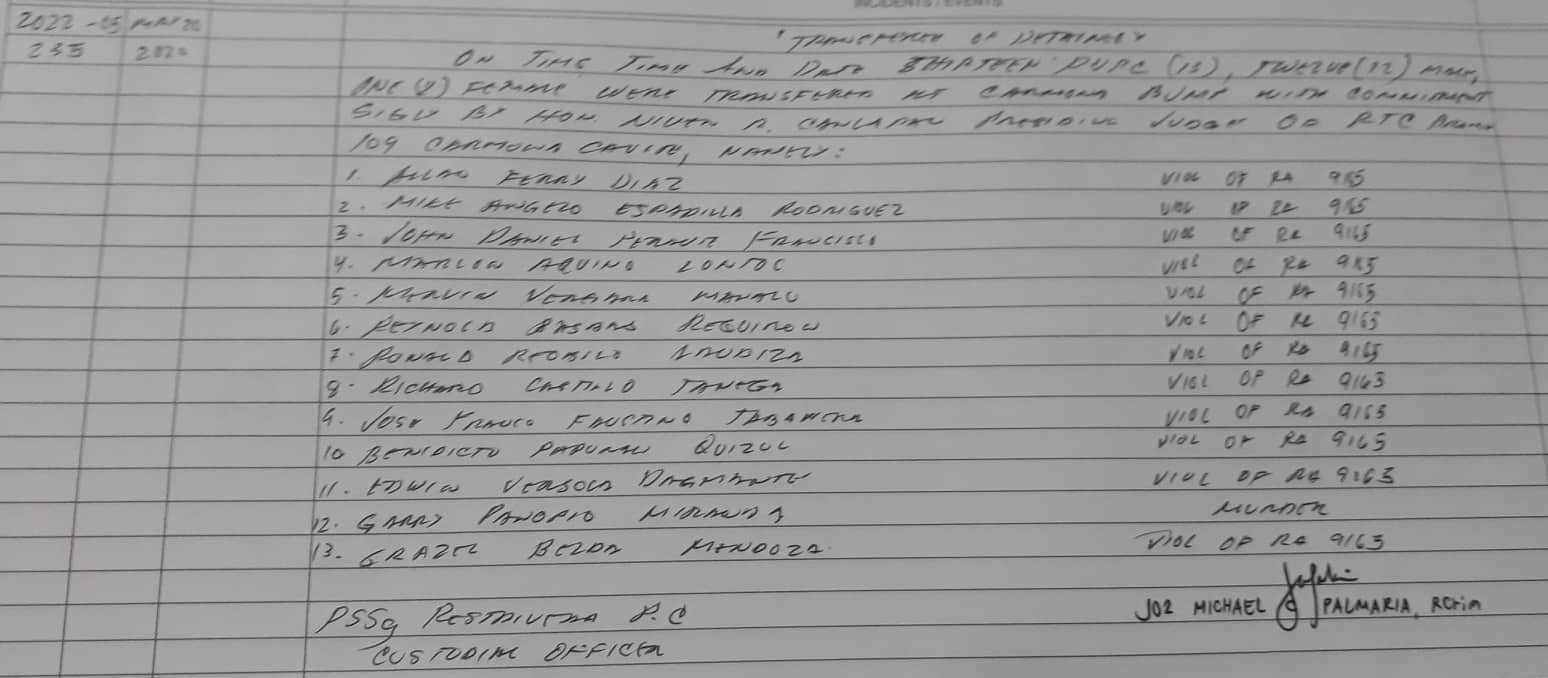 INCIDENTS/EVENTS
2022-05 MAY 20
235 2020
"TRANSFERED OF DETAINEES"
ON TIME, TIME AND DATE THIRTEEN PUPC (13), TWELVE (12) MALE,
ONE (1) FEMALE WERE TRANSFERED AT CARMONA BJMP WITH COMMITMENT
SIGN BY HON. R. PRESIDING JUDGE OF RTC BRANCH
109 CARMONA CAVITE, NAMELY:
1. FERRY DIAZ VIOL OF RA 9165
2. MIKE ANGELO ESPADILLA RODRIGUEZ VIOL OF RA 9165
3. JOHN DANIEL FRANCISCO VIOL OF RA 9165
4. MARLON AQUINO LONTOC VIOL OF RA 9165
5. MERVIN VERGARA MANALO VIOL OF RA 9165
6. REYNOLD VIOL OF RA 9165
7. RONALD VIOL OF RA 9165
8. RICHARD CASTILLO TANEGA VIOL OF RA 9163
9. JOSE FRANCO FAUSTINO VIOL OF RA 9165
10 BENIDICTO QUIZOL VIOL OF RA 9165
11. EDWIN VERSOLA DAGMANTE VIOL OF RA 9163
12. GARRY PANOPIO MIRANDA MURDER
13. GRAZEL BELDA MENDOZA VIOL OF RA 9163
PSSg RESTRIVERA P.C JO2 MICHAEL G PALMARIA, RCrim
CUSTODIAL OFFICER